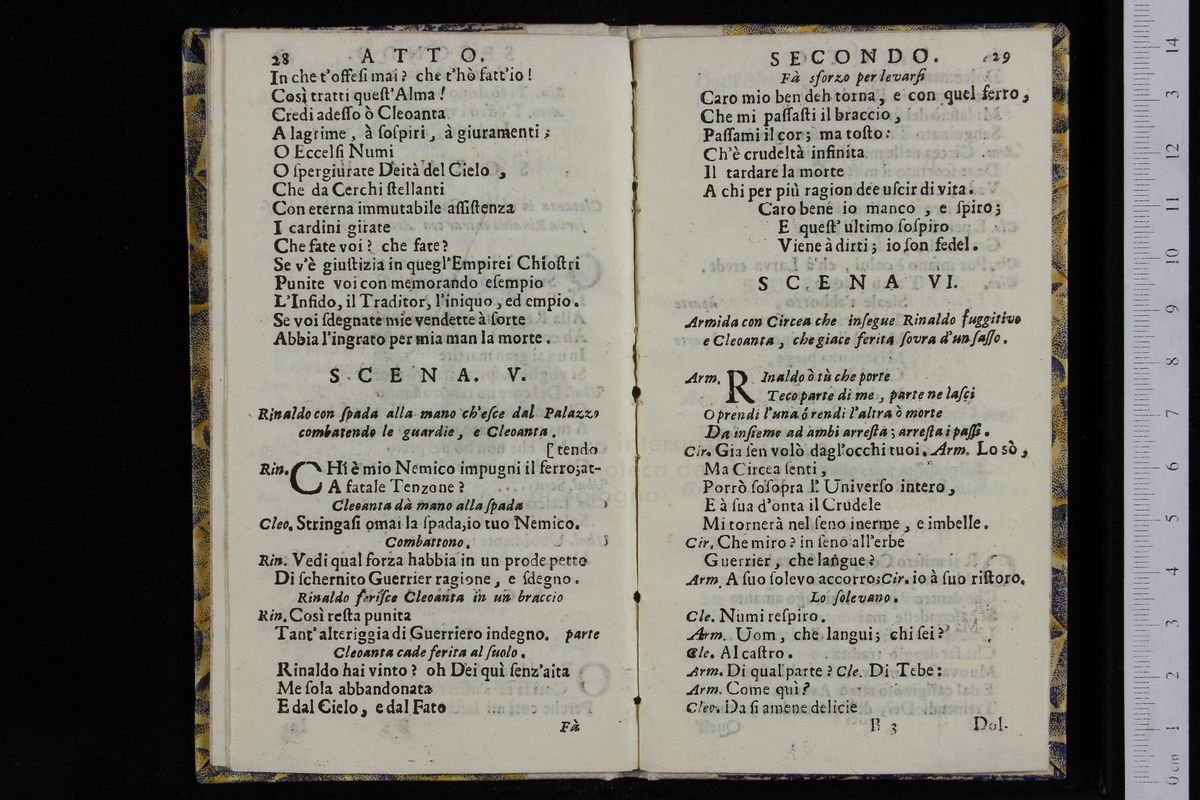 28 ATTO.
In che t'offesi mai? che t'hò fatt'io!
Così tratti quest'Alma!
Credi adesso ò Cleoanta
A lagrime, à sospiri, à giuramenti;
O Eccelsi Numi
O spergiurate Deità del Cielo,
Che da Cerchi stellanti
Con eterna immutabile assistenza
I cardini girate
Che fate voi? che fate?
Se v'è giustizia in quegl'Empirei Chiostri
Punite voi con memorando esempio
L'Infido, il Traditor, l'iniquo, ed empio.
Se voi sdegnate mie vendette à sorte
Abbia l'ingrato per mia man la morte.
SCENA. V.
Rinaldo con spada alla mano ch'esce dal Palazzo
combatendo le guardie, e Cleoanta.
[tendo
Rin. CHi è mio Nemico impugni il ferro;at-
A fatale Tenzone?
Cleoanta dà mano alla spada
Cleo. Stringasi omai la spada;io tuo Nemico.
Combattono.
Rin. Vedi qual forza habbia in un prode petto
Di schernito Guerrier ragione, e sdegno.
Rinaldo ferisce Cleoanta in un braccio
Rin. Così resta punita
Tant'alteriggia di Guerriero indegno. parte
Cleoanta cade ferita al suolo.
Rinaldo hai vinto? oh Dei quì senz'aita
Me sola abbandonata
E dal Cielo, e dal Fato
Fà
SECONDO. 29
Fà sforzo per levarsi
Caro mio ben deh torna, e con quel ferro,
Che mi passasti il braccio,
Passami il cor; ma tosto:
Ch'è crudeltà infinita
Il tardare la morte
A chi per più ragion dee uscir di vita.
Caro bene io manco, e spiro;
E quest'ultimo sospiro
Viene à dirti; io son fedel.
SCENA VI.
Armida con Circea che insegue Rinaldo fuggitivo
e Cleoanta, che giace ferita sovra d'un sasso.
Arm. RInaldo ò tù che porte
Teco parte di me, parte ne lasci
O prendi l'una ó rendi l'altra ò morte
Da insieme ad ambi arresta; arresta i passi.
Cir. Gia sen volò dagl'occhi tuoi. Arm. Lo sò,
Ma Circea senti,
Porrò sosopra l'Universo intero,
E à sua d'onta il Crudele
Mi tornerà nel seno inerme, e imbelle.
Cir. Che miro? in seno all'erbe
Guerrier, che langue?
Arm. A suo solevo accorro;Cir. io à suo ristoro.
Lo solevano.
Cle. Numi respiro.
Arm. Uom, che langui; chi sei?
Cle. Al castro.
Arm. Di qual parte? Cle. Di Tebe:
Arm. Come quì?
Cleo. Da sì amene delicie
B 3 Dol-